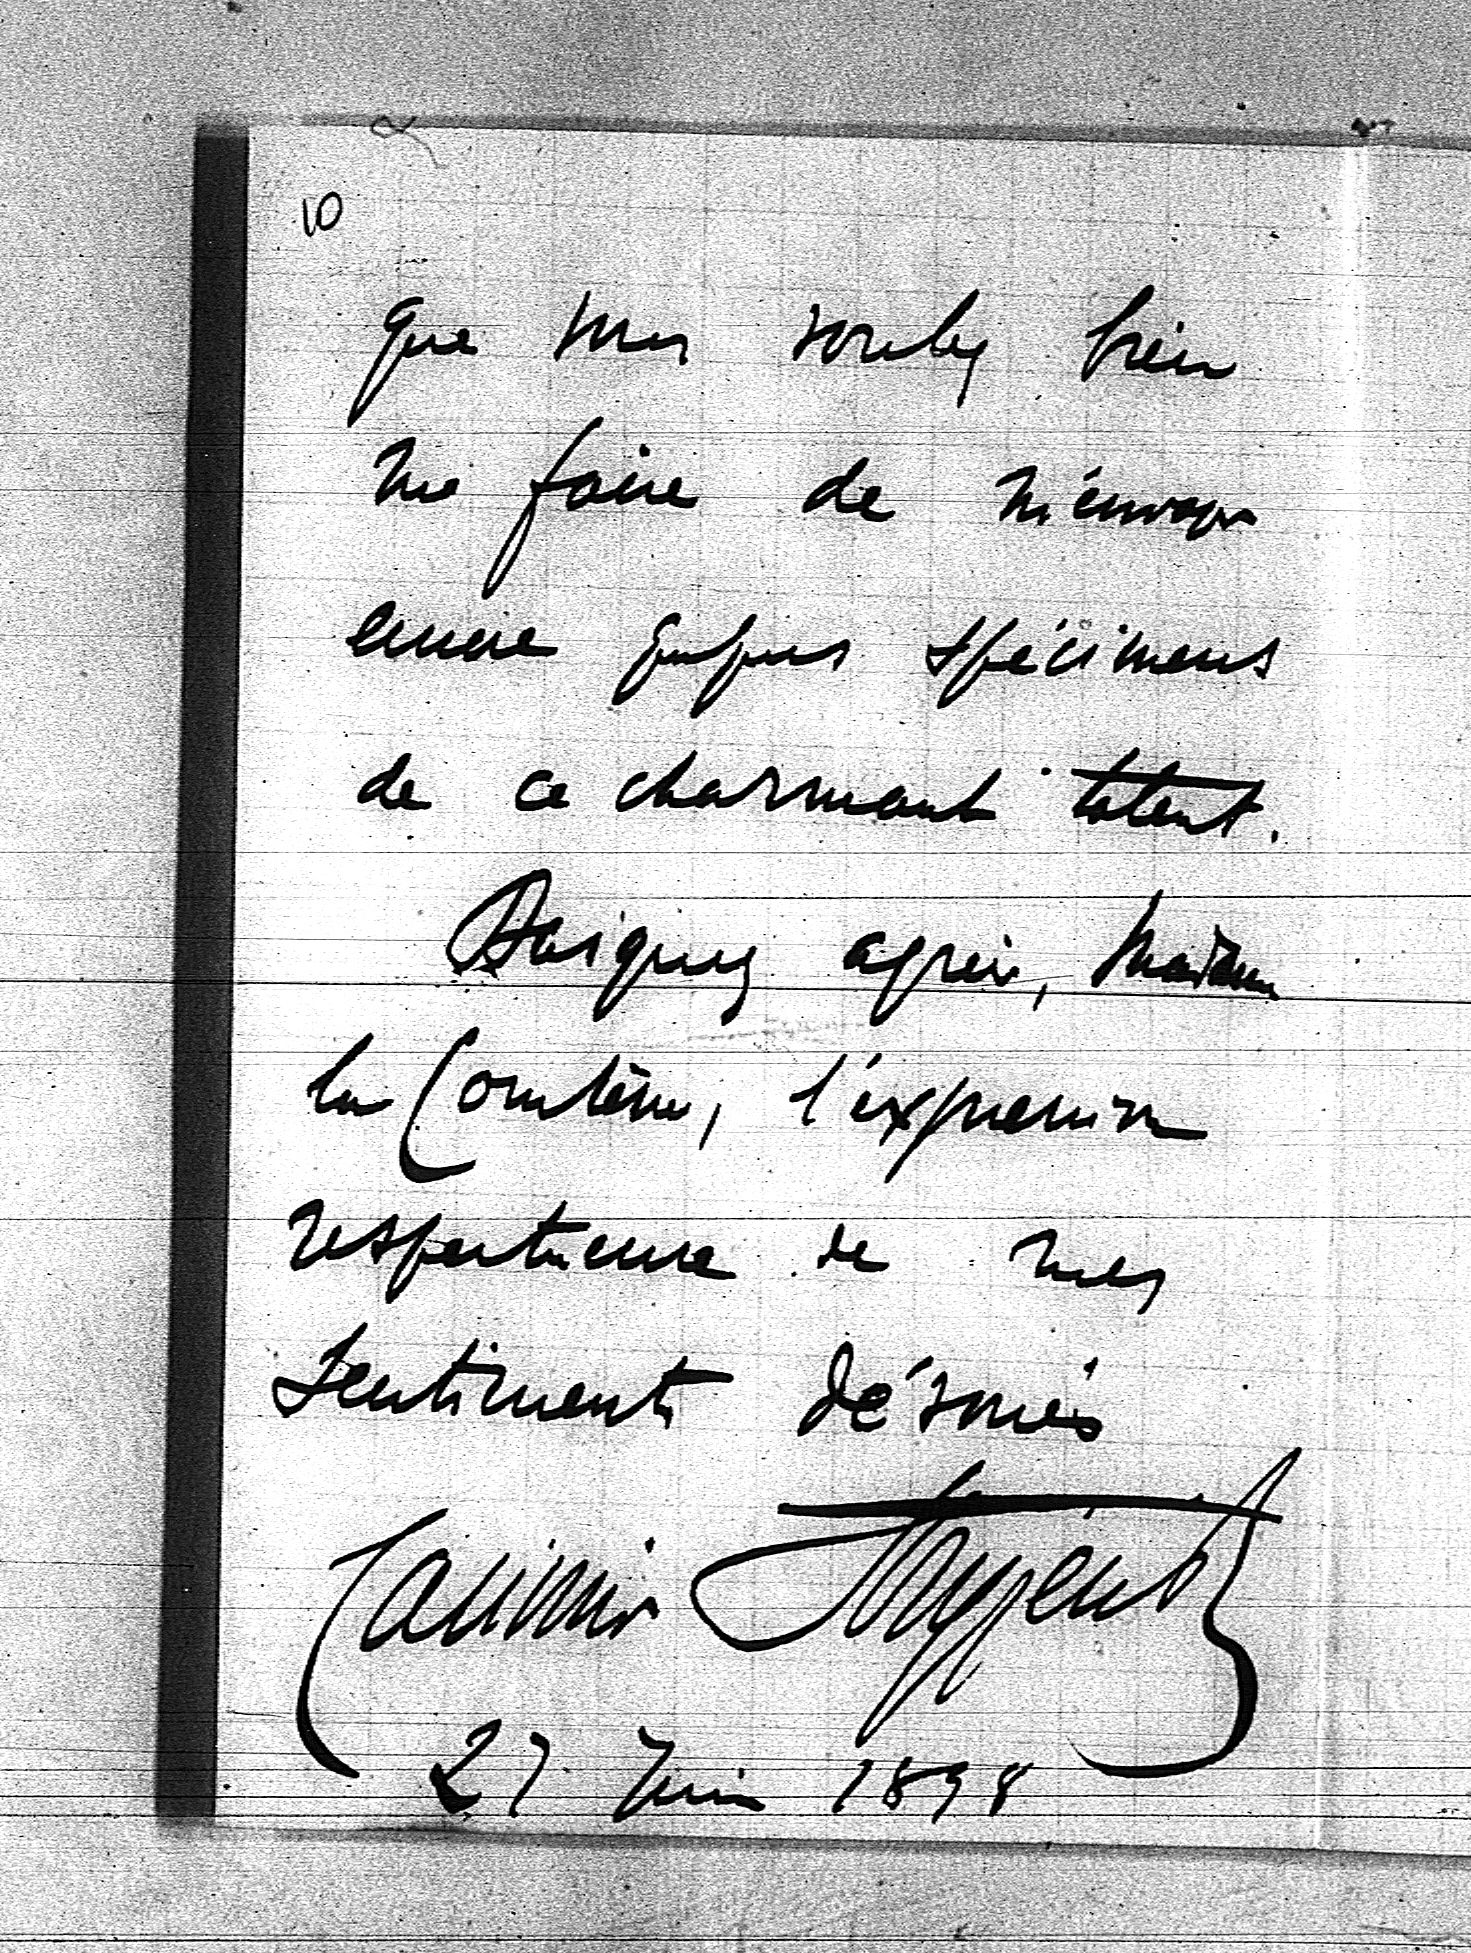 10
que vous voulez bien
me faire de m'envoyer
encore quelques spécimens
de ce charmant talent.
Daignez agréer, Madame
la Comtesse, l'expression
respectueuse de mes
sentiments dévoués
Casimir Stryienski
27 Juin 1898